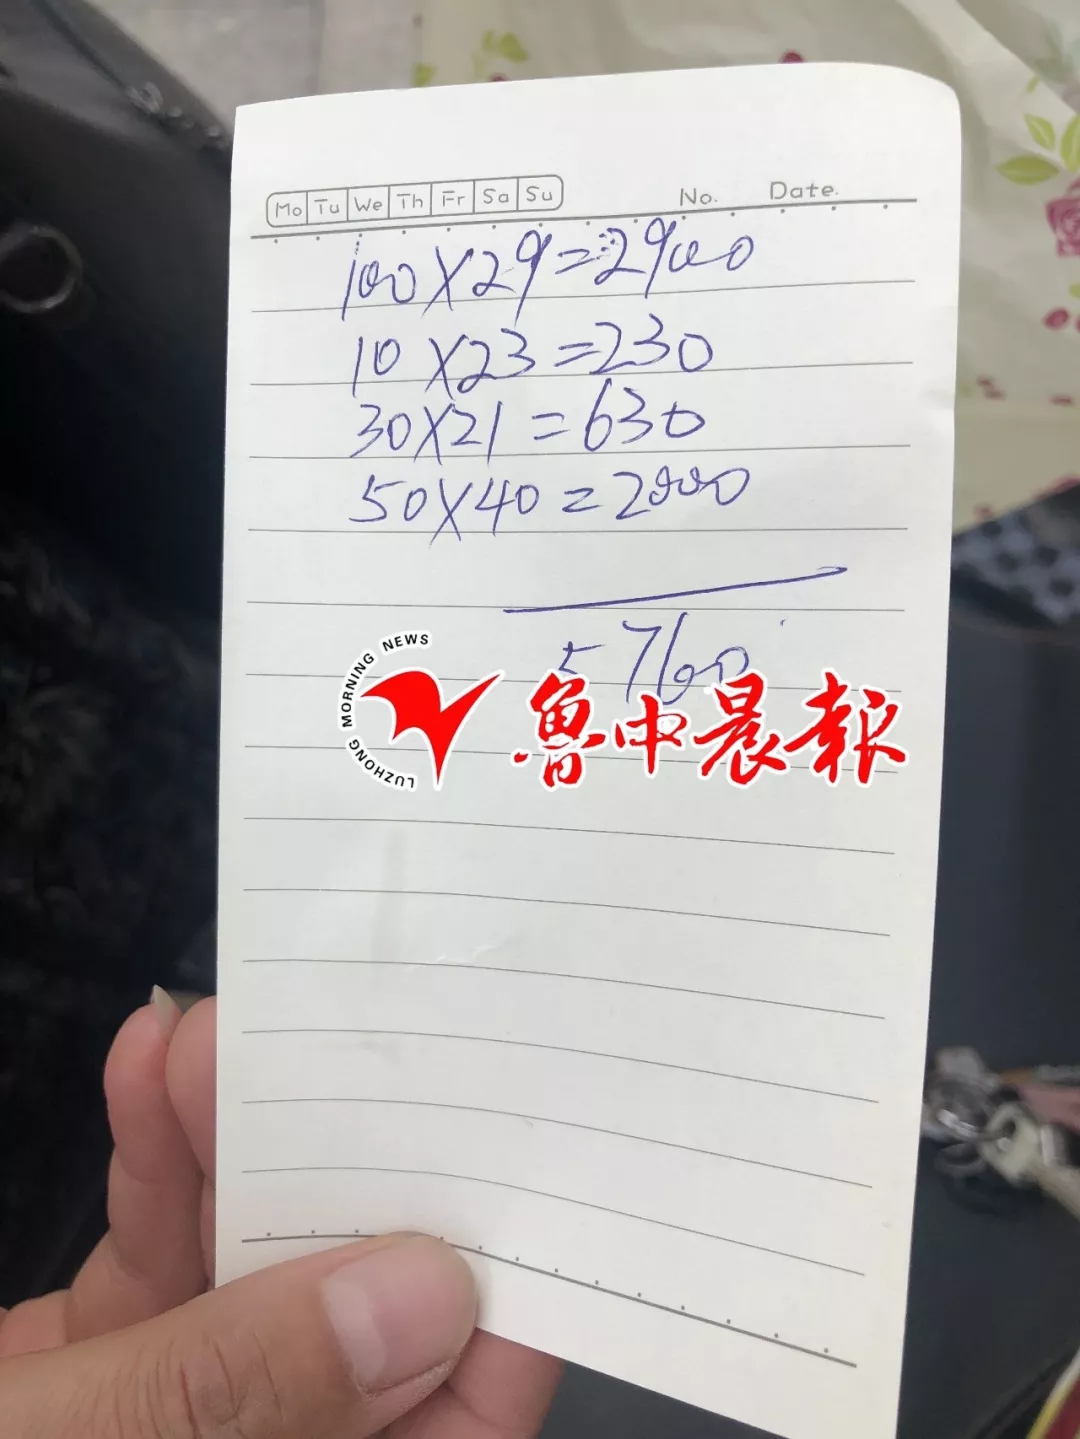 Mo Tu We Th Fr Sa Su No. Date.
100×29=2900
10×23=230
30×21=630
50×40=2000
5760
LUZHONG MORNING NEWS
魯中晨報